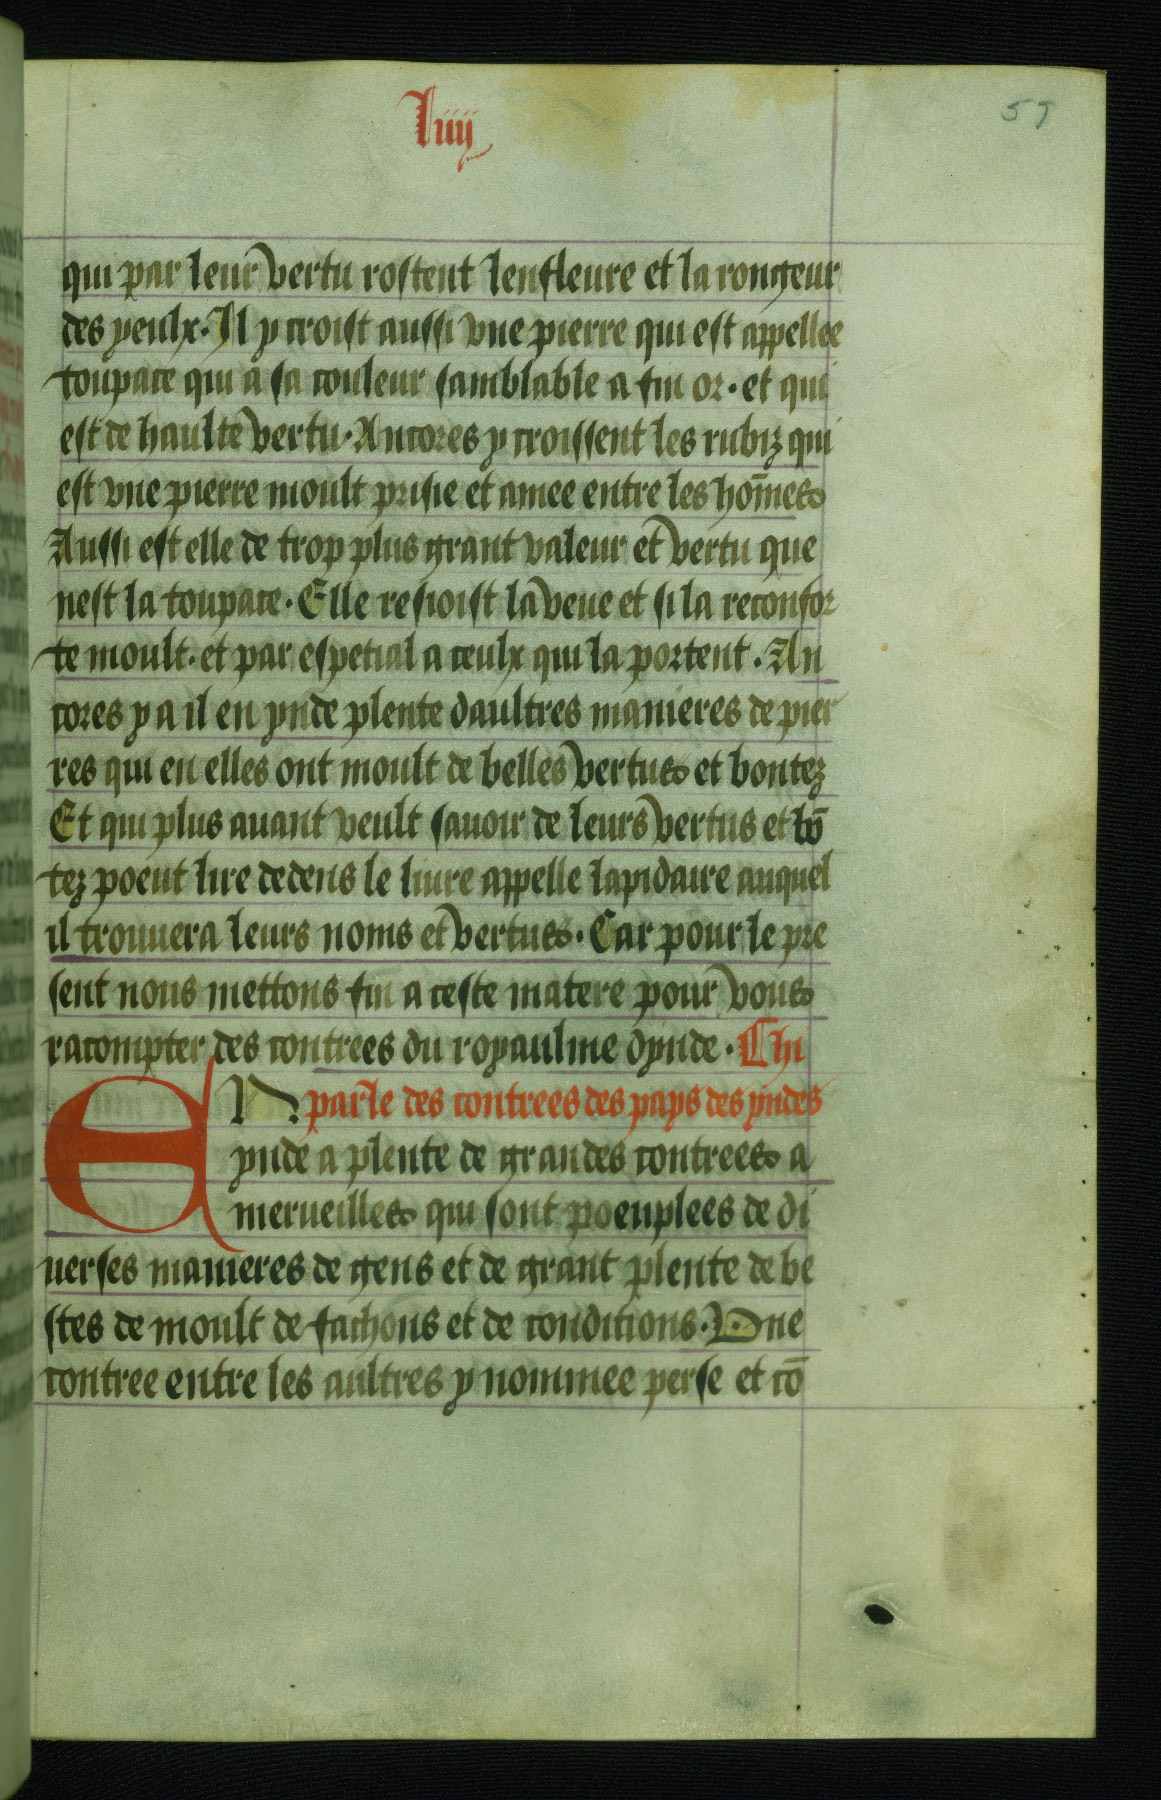 liiij
57
qui par leur vertu rostent lenfleure et la rongeur
des yeulx. Il y croist aussi vne pierre qui est appellee
toupace qui a sa couleur samblable a fin or. et qui
est de haulte vertu. Ancores y croissent les rubiz qui
est vne pierre moult prisie et amee entre les hom̄es
Aussi est elle de trop plus grant valeur et vertu que
nest la toupace. Elle resioist la veue et si la reconfor
te moult. et par especial a ceulx qui la portent. An
cores y a il en ynde plente daultres manieres de pier
res qui en elles ont moult de belles vertus et bontez
Et qui plus auant veult sauoir de leurs vertus et bō
tez poeut lire dedens le liure appelle lapidaire auquel
il trouuera leurs noms et vertus. Car pour le pre
sent nous mettons fin a ceste matere pour vous
racompter des contrees du royaulme dynde. Chi
EN parle des contrees des pays des yndes
ynde a plente de grandes contrees a
merueilles qui sont poeuplees de di
uerses manieres de gens et de grant plente de be
stes de moult de fachons et de conditions. Vne
contree entre les aultres y nommee perse et cō